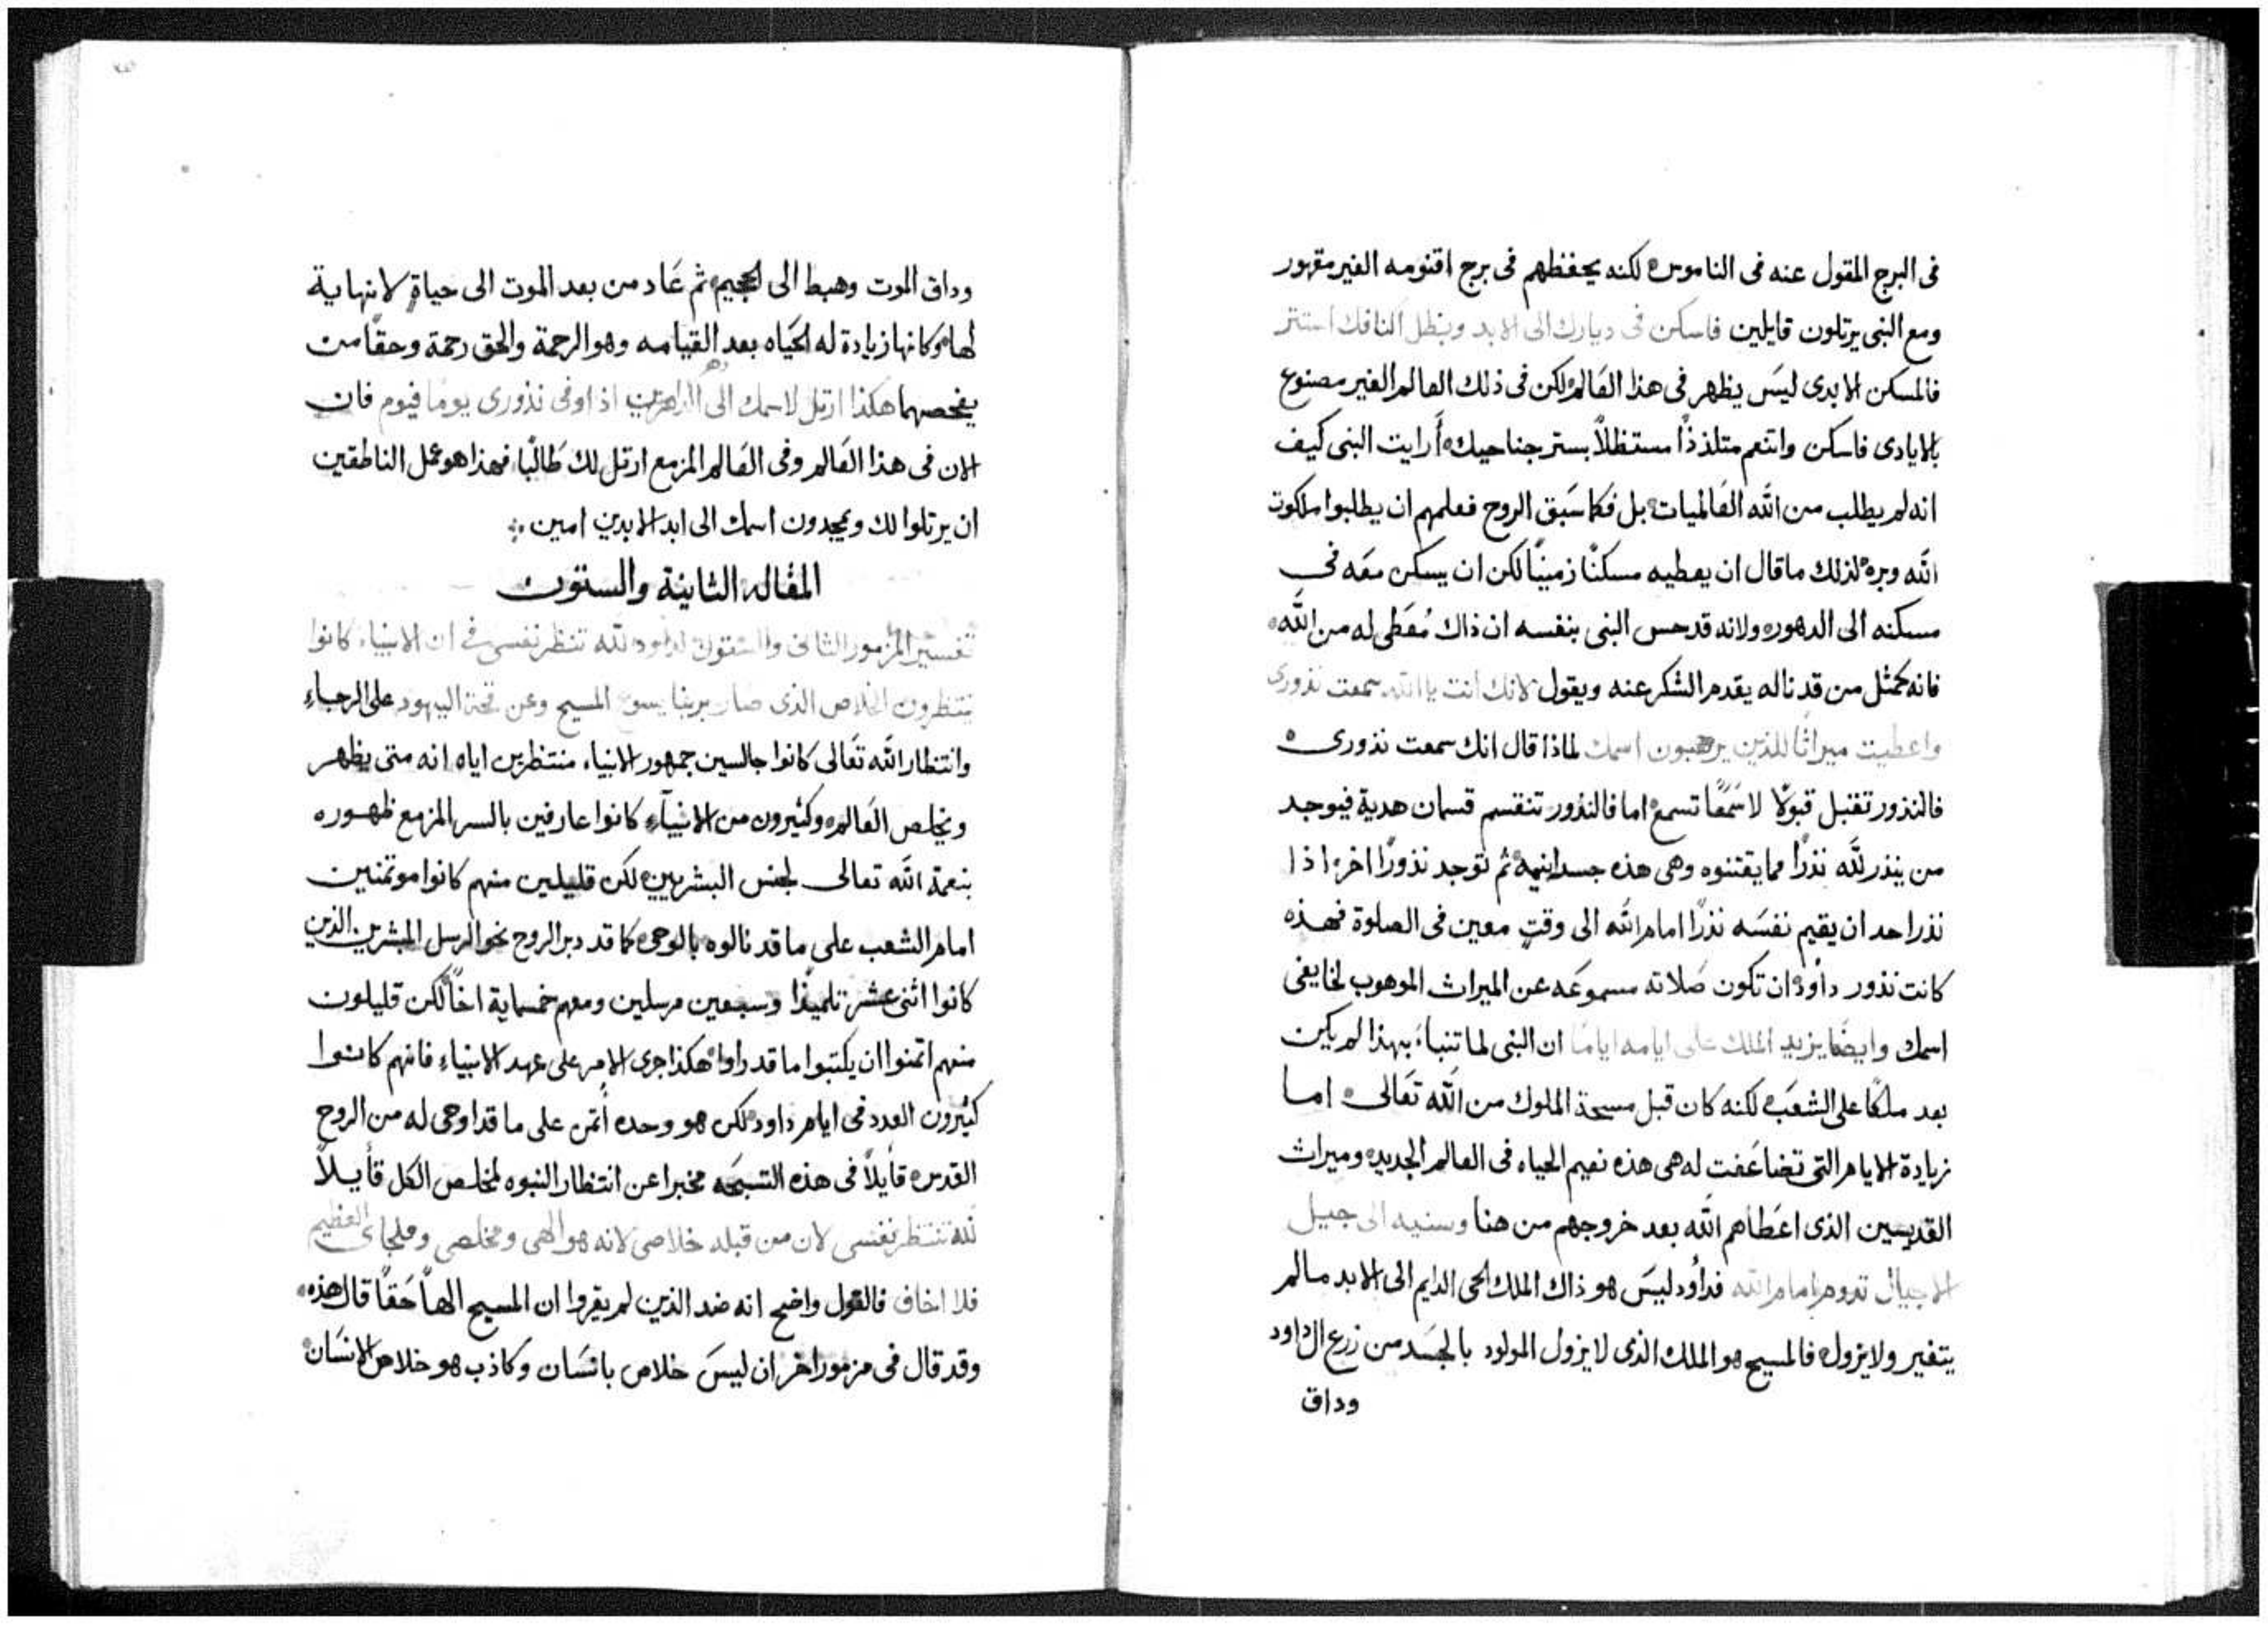 فى البرج المقول عنه فى الناموس ه لكنه يحفظهم فى برج اقنومه الغير مقهور
ومع النبى يرتلون قايلين فاسكن فى ديارك الى الابد وبظل اكنافك استتر
فالمسكن الابدى ليسَ يظهر فى هذا العَالم لكن فى ذلك العالم الغير مصنوع
بالايادى فاسكن واتنعم متلذذًا مستظلاً بستر جناحيك ه أرايت النبى كيف
انه لم يطلب من الله العَالميات ه بل فكما سَبق الروح فعلمهم ان يطلبوا ملكوت
الله وبره ه لذلك ما قال ان يعطيه مسكنًا زمنيًا لكن ان يسكن معَه فى
مسكنه الى الدهور ه ولانه قد حس النبى بنفسه ان ذاك مُعَطى له من الله ه
فانه كمثل من قد ناله يقدم الشكر عنه ويقول لانك انت يا الله سمعت نذورى
واعطيت ميراثًا للذين يرهبون اسمك لماذا قال انك سمعت نذورى ه
فالنذور تقتبل قبولاً لا سَمَعًا تسمع ه اما فالنذور تنقسم قسمان هدية فيوجد
من ينذر لله نذرًا مما يقتنوه وهى هذه جسدانيه ه ثم توجد نذورًا اخر ه اذا
نذر احد ان يقيم نفسَه نذرًا امام الله الى وقتٍ معين فى الصلوة فهذه
كانت نذور داود ه ان تكون صَلاته مسموعَه عن الميراث الموهوب لخايفى
اسمك وايضًا يزيد الملك على ايامه ايامًا ان النبى لما تنباء بهذا لم يكن
بعد ملكًا على الشعَب ه لكنه كان قبل مسحة الملوك من الله تعَالى ه اما
زيادة الايام التى تضاعَفت له هى هذه نعيم الحياه فى العالم الجديد ه وميراث
القديسين الذى اعَطاهم الله بعد خروجهم من هنا وسنيه الى جيل
الاجيال تدوم امام الله فداود ليسَ هو ذاك الملك الحى الدايم الى الابد ما لم
يتغير ولا يزول ه فالمسيح هو الملك الذى لا يزول المولود بالجسَد من زرع ال داود
وداق
وداق الموت وهبط الى الجحيم ه ثم عَاد من بعد الموت الى حياةٍ لا نهاية
لها ه وكانها زيادة له الحَياه بعد القيامه وهو الرحمة والحق رحمة وحقًا من
يفحصهما هكذا ارتل لاسمك الى دهر الداهرين اذ اوفى نذورى يومًا فيوم فان
الان فى هذا العَالم وفى العَالم المزمع ارتل لك طَالبًا ه فهذا هو عمل الناطقين
ان يرتلوا لك ويمجدون اسمك الى ابد الابدين امين
المقاله الثانية والستون
تفسير المزمور الثانى والستون لداود لله تنتظر نفسى فى ان الانبياء كانوا
ينتظرون الخلاص الذى صار بربنا يسوع المسيح وعن قحة اليهود على الرجاء
وانتظار الله تعَالى كانوا جالسين جمهور الانبياء منتظرين اياه انه متى يظهر
ويخلص العَالم ه وكثيرون من الانبيآء كانوا عارفين بالسر المزمع ظهوره
بنعمة الله تعالى لجنس البشريين ه لكن قليلين منهم كانوا موتمنين
امام الشعب على ما قد نالوه بالوحى ه كما قد دبر الروح نحو الرسل المبشرين الذين
كانوا اثنى عشر تلميذًا وسبعين مرسلين ومعهم خمسماية اخًا لكن قليلون
منهم اتمنوا ان يكتبوا ما قد راوا ه هكذا جرى الامر على عهد الانبياء فانهم كانوا
كثيرون العدد فى ايام داود ه لكن هو وحده أتمن على ما قد اوحى له من الروح
القدس ه قايلاً فى هذه التسبحَه مخبرا عن انتظار النبوه لمخلص الكل قأيلاً
لله تنتظر نفسى لان من قبله خلاصى لانه هو الهى ومخلصى وملجاى العظيم
فلا اخاف فالقول واضح انه ضد الذين لم يقروا ان المسيح الهاً حَقًا قال هذه ه
وقد قال فى مزمور اخر ان ليسَ خلاص بانسَان وكاذب هو خلاص الانسَان ه